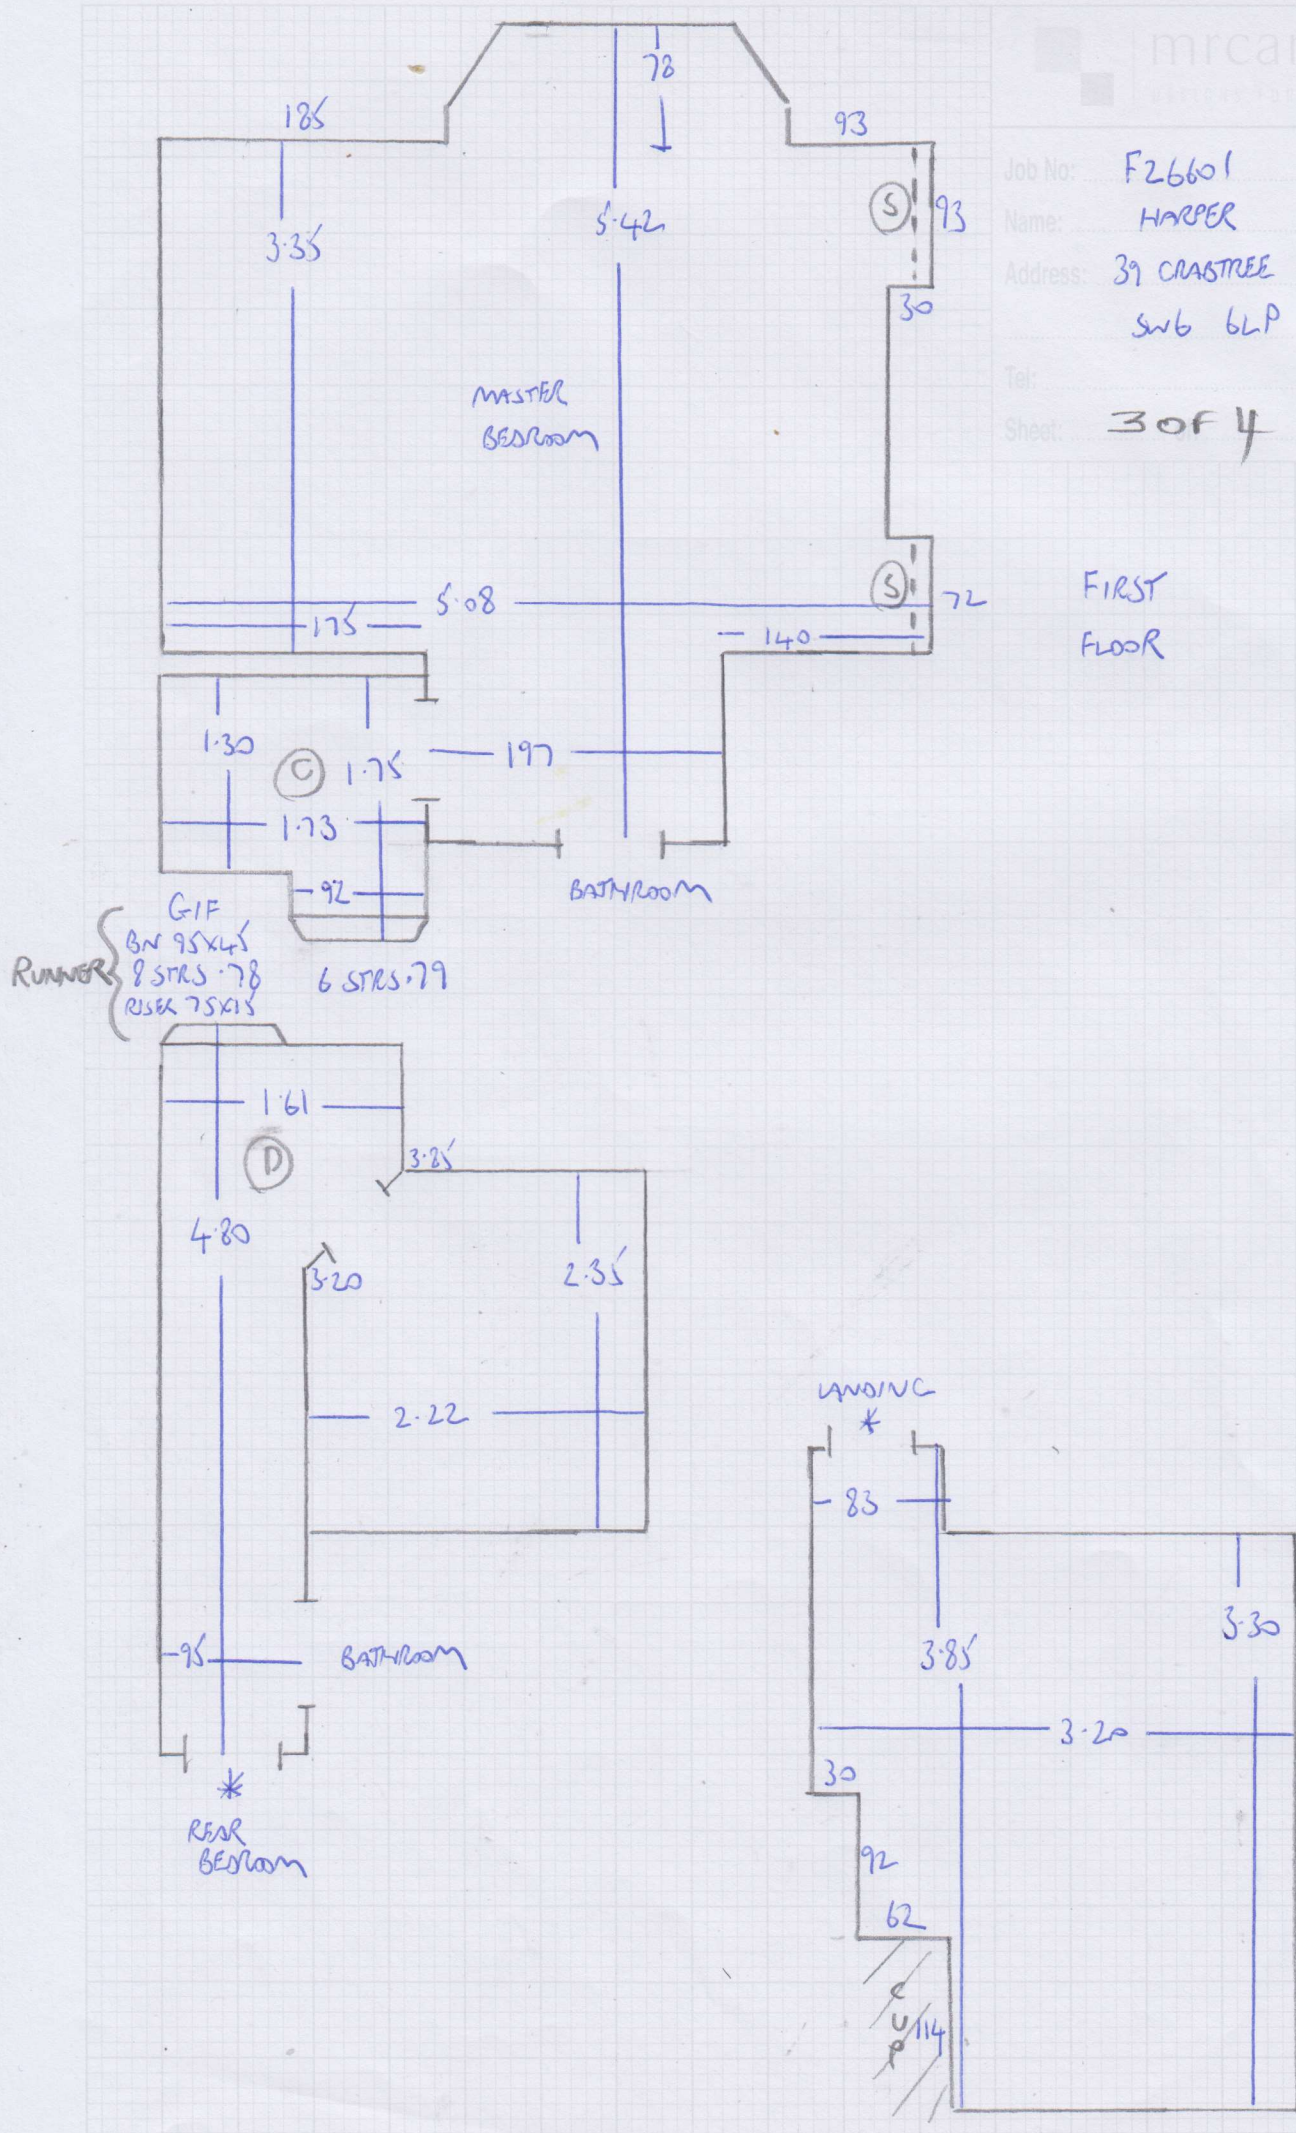 mrcar
Job No: F26601
Name: HARPER
Address: 39 CRABTREE
SW6 6LP
Tel:
Sheet: 3 of 4
FIRST
FLOOR
78
185
93
S
93
3.35
5.42
30
MASTER
BEDROOM
S
72
5.08
175
140
1.30
C
1.75
197
1.73
92
BATHROOM
GIF
BN 95x45
RUNNER
8 STRS .78
6 STRS .79
RISER 75x15
1.61
D
3.85
4.80
3.20
2.35
2.22
95
BATHROOM
*
REAR
BEDROOM
LANDING
*
83
3.85
3.30
3.20
30
92
62
CUP
114